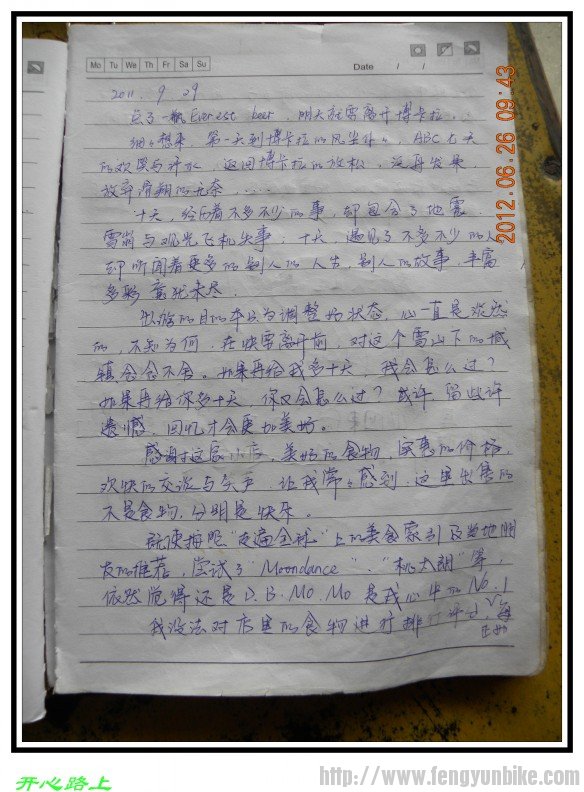 Mo Tu We Th Fr Sa Su
Date / /
2011. 9. 29
点了一瓶Everest beer，明天就要离开博卡拉，
细细想来，第一天到博卡拉的风尘仆仆，ABC七天
的欢笑与汗水，返回博卡拉的放松，没再发呆，
放弃滑翔的无奈……
十天，经历着不多不少的事，却包含了地震，
雪崩与观光飞机失事；十天，遇见了不多不少的人
却听闻着更多的别人的人生，别人的故事，丰富
多彩，意犹未尽。
出旅的目的本只为调整好状态，心一直是淡然
的，不知为何，在快要离开前，对这个雪山下的城
镇念念不舍。如果再给我多十天，我会怎么过？
如果再给你多十天，你又会怎么过？或许，留些许
遗憾，回忆才会更加美好。
感谢这家小店，美好的食物，实惠的价格，
欢快的交谈与笑声，让我常常感到，这里出售的
不是食物，分明是快乐。
就使按照"走遍全球"上的美食索引及当地朋
友的推荐，尝试了"Moondance"、"桃太朗"等，
依然觉得还是D.B.MO.MO是我心中的No.1
我没法对店里的食物进行排行评比，每
2012.06.26 09:43
开心路上
http://www.fengyunbike.com